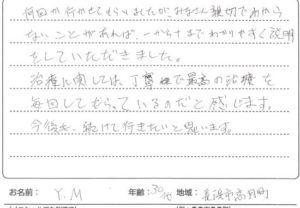 何回か行かせてもらいましたが、みなさん親切でわから
ないことがあれば、一から十までわかりやすく説明
をしていただきました。
治療に関しては、丁寧で最高の治療を
毎回してもらっているのだと感じます。
今後も、続けて行きたいと思います。
お名前: Y.M 年齢: 30代 地域: 長浜市高月町